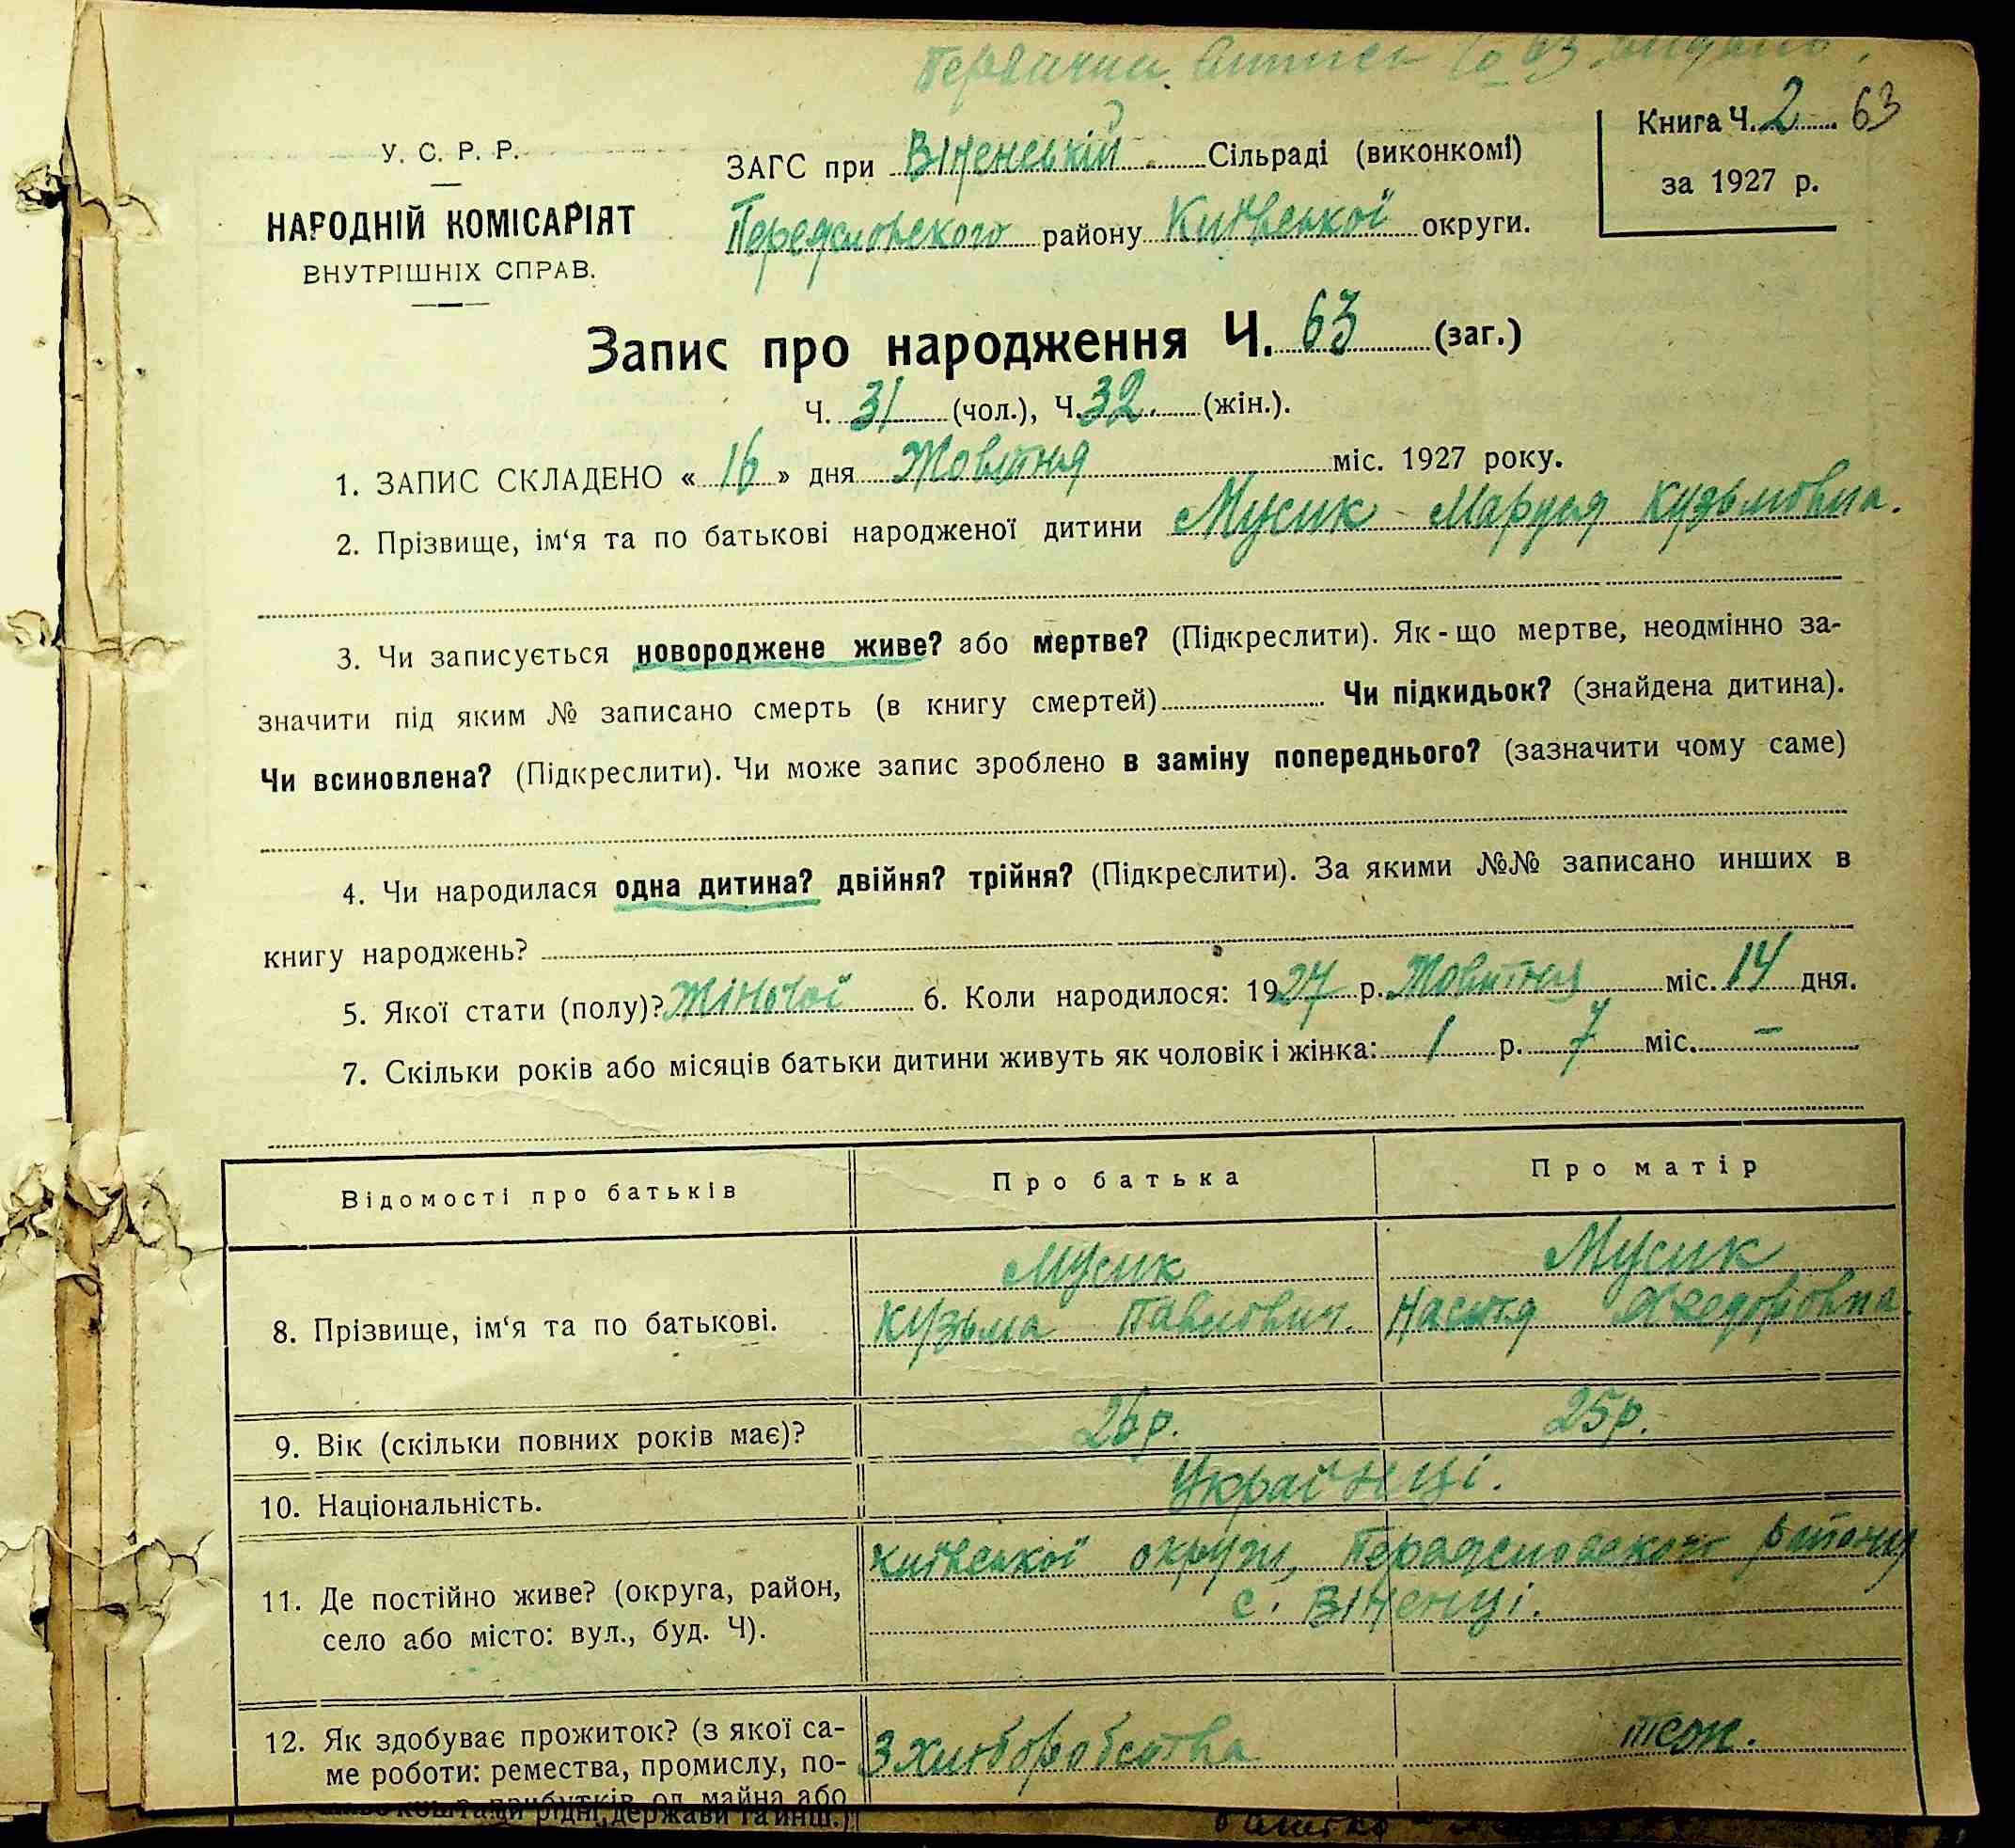 Первични витпсь № 63 видано.
Книга Ч. 2 63
за 1927 р.
У. С. Р. Р.
НАРОДНІЙ КОМІСАРІЯТ
ВНУТРІШНІХ СПРАВ.
ЗАГС при Віненській Сільраді (виконкомі)
району Київської округи.
Запис про народження Ч. 63 (заг.)
Ч. 31 (чол.), Ч. 32. (жін.).
1. ЗАПИС СКЛАДЕНО « 16 » дня Жовтня міс. 1927 року.
2. Прізвище, ім‘я та по батькові народженої дитини Мусик Маруся Кузьмовна.
3. Чи записується новороджене живе? або мертве? (Підкреслити). Як-що мертве, неодмінно за-
значити під яким № записано смерть (в книгу смертей) Чи підкидьок? (знайдена дитина).
Чи всиновлена? (Підкреслити). Чи може запис зроблено в заміну попереднього? (зазначити чому саме)
4. Чи народилася одна дитина? двійня? трійня? (Підкреслити). За якими №№ записано инших в
книгу народжень?
5. Якої стати (полу)? Жіночої 6. Коли народилося: 1927 р. Жовтня міс. 14 дня.
7. Скільки років або місяців батьки дитини живуть як чоловік і жінка: 1 р. 7 міс. –
Відомості про батьків Про батька Про матір
8. Прізвище, ім‘я та по батькові.
Мусик
Кузьма Павлович.
Мусик
Настя Хведоровна.
9. Вік (скільки повних років має)? 26р. 25р.
10. Національність. Українці.
11. Де постійно живе? (округа, район,
село або місто: вул., буд. Ч).
Київської округи, району
с. Віненці.
12. Як здобуває прожиток? (з якої са-
ме роботи: ремества, промислу, по-
З хліборобства
теж.
прибутків од майна або
рідні, держави та инш.)